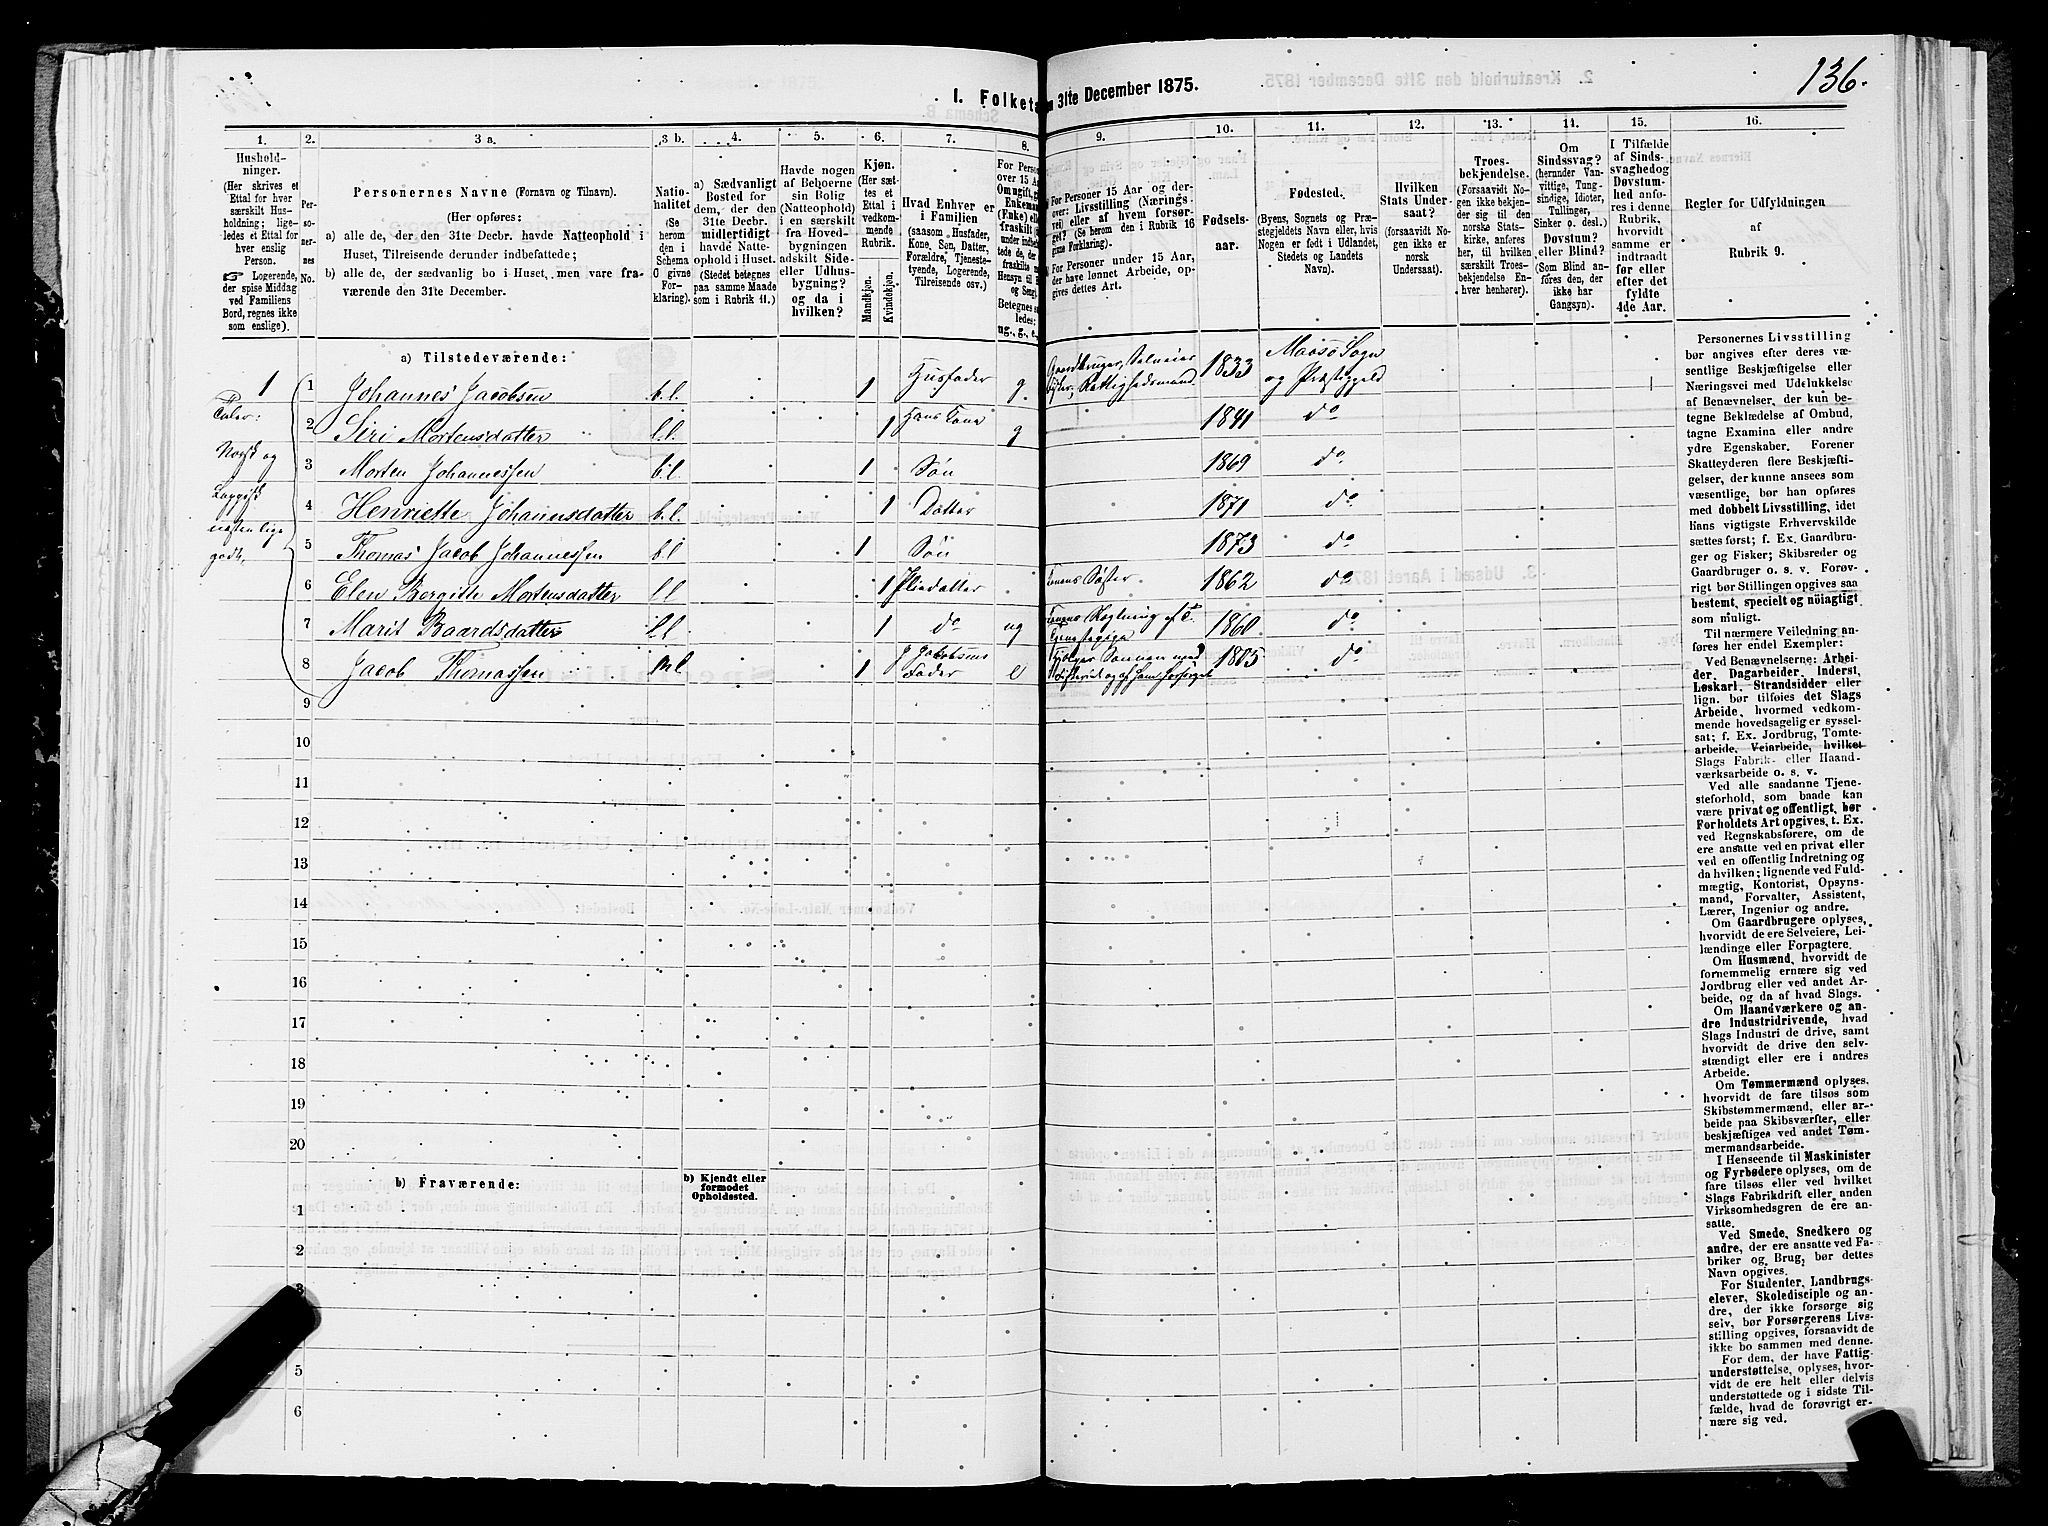 136.
I. Folket
n 31te December 1875.
1.
2.
3 a.
3 b.
4.
5.
6.
7.
8.
9.
10.
11.
12.
13.
14.
15.
16.
Hushold-
ninger.
(Her skrives et
Ettal for hver
særskilt Hus-
holdning; lige-
ledes et Ettal for
hver enslig
Person.
☞ Logerende,
der spise Middag
ved Familiens
Bord, regnes ikke
som enslige).
Per-
so-
ner-
nes
No.
Personernes Navne (Fornavn og Tilnavn).
(Her opføres:
a) alle de, der den 31te Decbr. havde Natteophold i
Huset, Tilreisende derunder indbefattede;
b) alle de, der sædvanlig bo i Huset, men vare fra-
værende den 31te December.
Natio-
nalitet
(Se
herom
den i
Schema
C givne
For-
klaring).
a) Sædvanligt
Bosted for
dem, der den
31te Decbr.
midlertidigt
havde Natte-
ophold i Huset.
(Stedet betegnes
paa samme Maade
som i Rubrik 11.)
Havde nogen
af Beboerne
sin Bolig
(Natteophold)
i en særskilt
fra Hoved-
bygningen
adskilt Side-
eller Udhus-
bygning?
og da i
hvilken?
Kjøn.
(Her sæt-
tes et
Ettal i
vedkom-
mende
Rubrik.
Mandkjøn.
Kvindekjøn.
Hvad Enhver er
i Familien
(saasom Husfader,
Kone, Søn, Datter,
Forældre, Tjeneste-
tyende, Logerende,
Tilreisende osv.)
For Perso
over 15 A
Om ugift, g
Enkema
(Enke) ell
fraskilt
Betegnes s
ledes:
ug., g., e.
For Personer 15 Aar og der-
over: Livsstilling (Nærings-
vei) eller af hvem forsør-
get? (Se herom den i Rubrik 16
givne Forklaring.)
For Personer under 15 Aar,
der have lønnet Arbeide, op-
gives dettes Art.
Fødsels-
aar.
Fødested.
(Byens, Sognets og Præ-
stegjeldets Navn eller, hvis
Nogen er født i Udlandet,
Stedets og Landets
Navn).
Hvilken
Stats Under-
saat?
(forsaavidt No-
gen ikke er
norsk
Undersaat).
Troes-
bekjendelse.
(Forsaavidt No-
gen ikke bekjen-
der sig til den
norske Stats-
kirke, anføres
her, til hvilken
særskilt Troes-
bekjendelse En-
hver henhører).
Om
Sindssvag?
(herunder Van-
vittige, Tung-
sindige, Idioter,
Tullinger,
Sinker o. desl.)
Døvstum?
eller Blind?
(Som Blind an-
føres den, der
ikke har
Gangsyn).
I Tilfælde
af Sinds-
svaghed og
Døvstum-
hed anfø-
res i denne
Rubrik,
hvorvidt
samme er
indtraadt
før eller
efter det
fyldte
4de Aar.
Regler for Udfyldningen
af
Rubrik 9.
a) Tilstedeværende:
1
1 Johannes Jacobsen b.l. 1 Husfader g. Gaardbruger, Selveier 1833 Maasø Sogn
Fisker, Rettighedsmand. og Præstegjeld
Taler:
2 Siri Mortensdatter l.l. 1 Hans Kone g 1841 do
Norsk og
3 Morten Johannessen b.l. 1 Søn 1869 do
Lappisk
4 Henriette Johannsdatter b.l. 1 Datter 1871 do
næsten lige
5 Thomas Jacob Johannessen b.l 1 Søn 1873 do
godt,
6 Elen Bergitte Mortensdatter l.l 1 Pleiedatter Konens Søster 1862 do
7 Marit Baardsdatter l.l 1 do ug Konens 1860 do
Tjenestepige
8 Jacob Thomassen b.l 1 J. Jacobsens Hjelper Sønnen med 1805 do
Fader e Fiskeriet og af ham forsørget
9
10
11
12
13
14
15
16
17
18
19
20
b) Fraværende:
b) Kjendt eller
formodet
Opholdssted.
1
2
3
5
6
Personernes Livsstilling
bør angives efter deres væ-
sentlige Beskjæftigelse eller
Næringsvei med Udelukkelse
af Benævnelser, der kun be-
tegne Beklædelse af Ombud,
tagne Examina eller andre
ydre Egenskaber. Forener
Skatteyderen flere Beskjæfti-
gelser, der kunne ansees som
væsentlige, bør han opføres
med dobbelt Livsstilling, idet
hans vigtigste Erhvervskilde
sættes først; f. Ex. Gaardbru-
ger og Fisker; Skibsreder og
Gaardbruger o. s. v. Forøv-
rigt bør Stillingen opgives saa
bestemt, specielt og nöiagtigt
som muligt.
Til nærmere Veiledning an-
føres her endel Exempler:
Ved Benævnelserne: Arbei-
der, Dagarbeider, Inderst,
Løskarl, Strandsidder eller
lign. bør tilføies det Slags
Arbeide, hvormed vedkom-
mende hovedsagelig er syssel-
sat; f. Ex. Jordbrug, Tomte-
arbeide, Veiarbeide, hvilket
Slags Fabrik- eller Haand-
værksarbeide o. s. v.
Ved alle saadanne Tjene-
steforhold, som baade kan
være privat og offentligt, bør
Forholdets Art opgives, t. Ex.
ved Regnskabsførere, om de
ere ansatte ved en privat eller
ved en offentlig Indretning og
da hvilken; lignende ved Fuld-
mægtig, Kontorist, Opsyns-
mand, Forvalter, Assistent,
Lærer, Ingeniør og andre.
Om Gaardbrugere oplyses,
hvorvidt de ere Selveiere, Lei-
lændinge eller Forpagtere.
Om Husmænd, hvorvidt de
fornemmelig ernære sig ved
Jordbrug eller ved andet Ar-
beide, og da af hvad Slags.
Om Haandværkere og an-
dre Industridrivende, hvad
Slags Industri de drive, samt
hvorvidt de drive den selv-
stændigt eller ere i andres
Arbeide.
Om Tømmermænd oplyses,
hvorvidt de fare tilsøs som
Skibstømmermænd, eller ar-
beide paa Skibsværfter, eller
beskjæftiges ved andet Tøm-
mermandsarbeide.
I Henseende til Maskinister
og Fyrbødere oplyses, om de
fare tilsøs eller ved hvilket
Slags Fabrikdrift eller anden
Virksomhedsgren de ere an-
satte.
Ved Smede, Snedkere og
andre, der ere ansatte ved Fa-
briker og Brug, bør dettes
Navn opgives.
For Studenter, Landbrugs-
elever, Skoledisciple og an-
dre, der ikke forsørge sig
selv, bør Forsørgerens Livs-
stilling opgives, forsaavidt de
ikke bo sammen med denne.
For dem, der have Fattig-
understøttelse, oplyses, hvor-
vidt de ere helt eller delvis
understøttede og i sidste Til-
fælde, hvad de forøvrigt er-
nære sig ved.